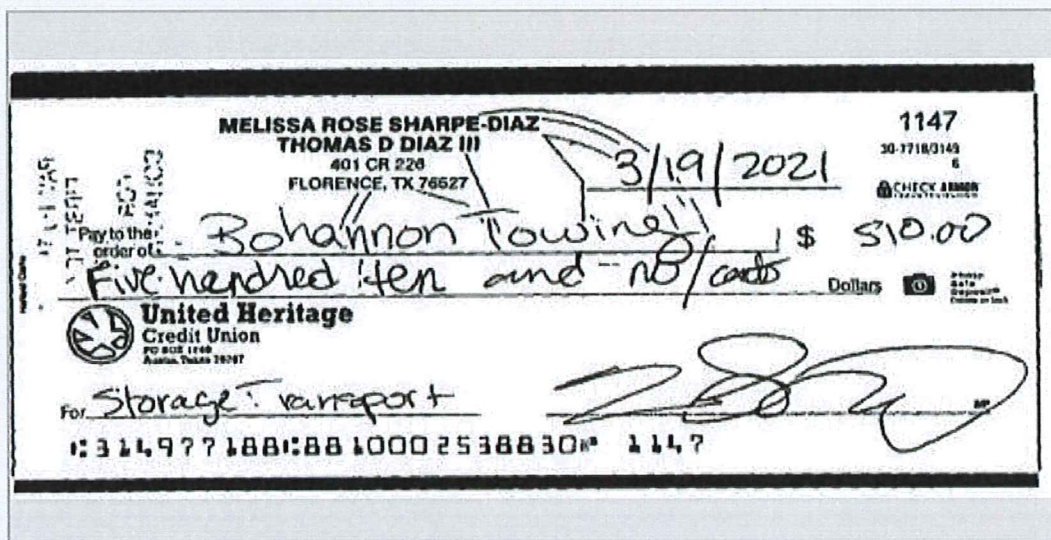 MELISSA ROSE SHARPE-DIAZ
THOMAS D DIAZ III
401 CR 226
FLORENCE, TX 76527
1147
30-7718/3149
6
3/19/2021
CHECK ARMOR
Pay to the order of Bohannon Towing $ 510.00
Five hundred ten and no/cents Dollars
United Heritage
Credit Union
PO BOX 1648
Austin, Texas 78767
For Storage Transport
MP
⑆314977188⑆8810002538830⑈ 1147